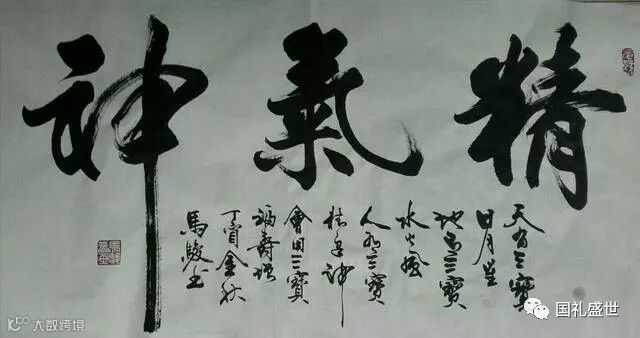 精氣神
天有三寶
日月星
地有三寶
水火風
人有三寶
精氣神
會用三寶
福壽
丁酉金秋
馬駿書
大数跨境
国礼盛世